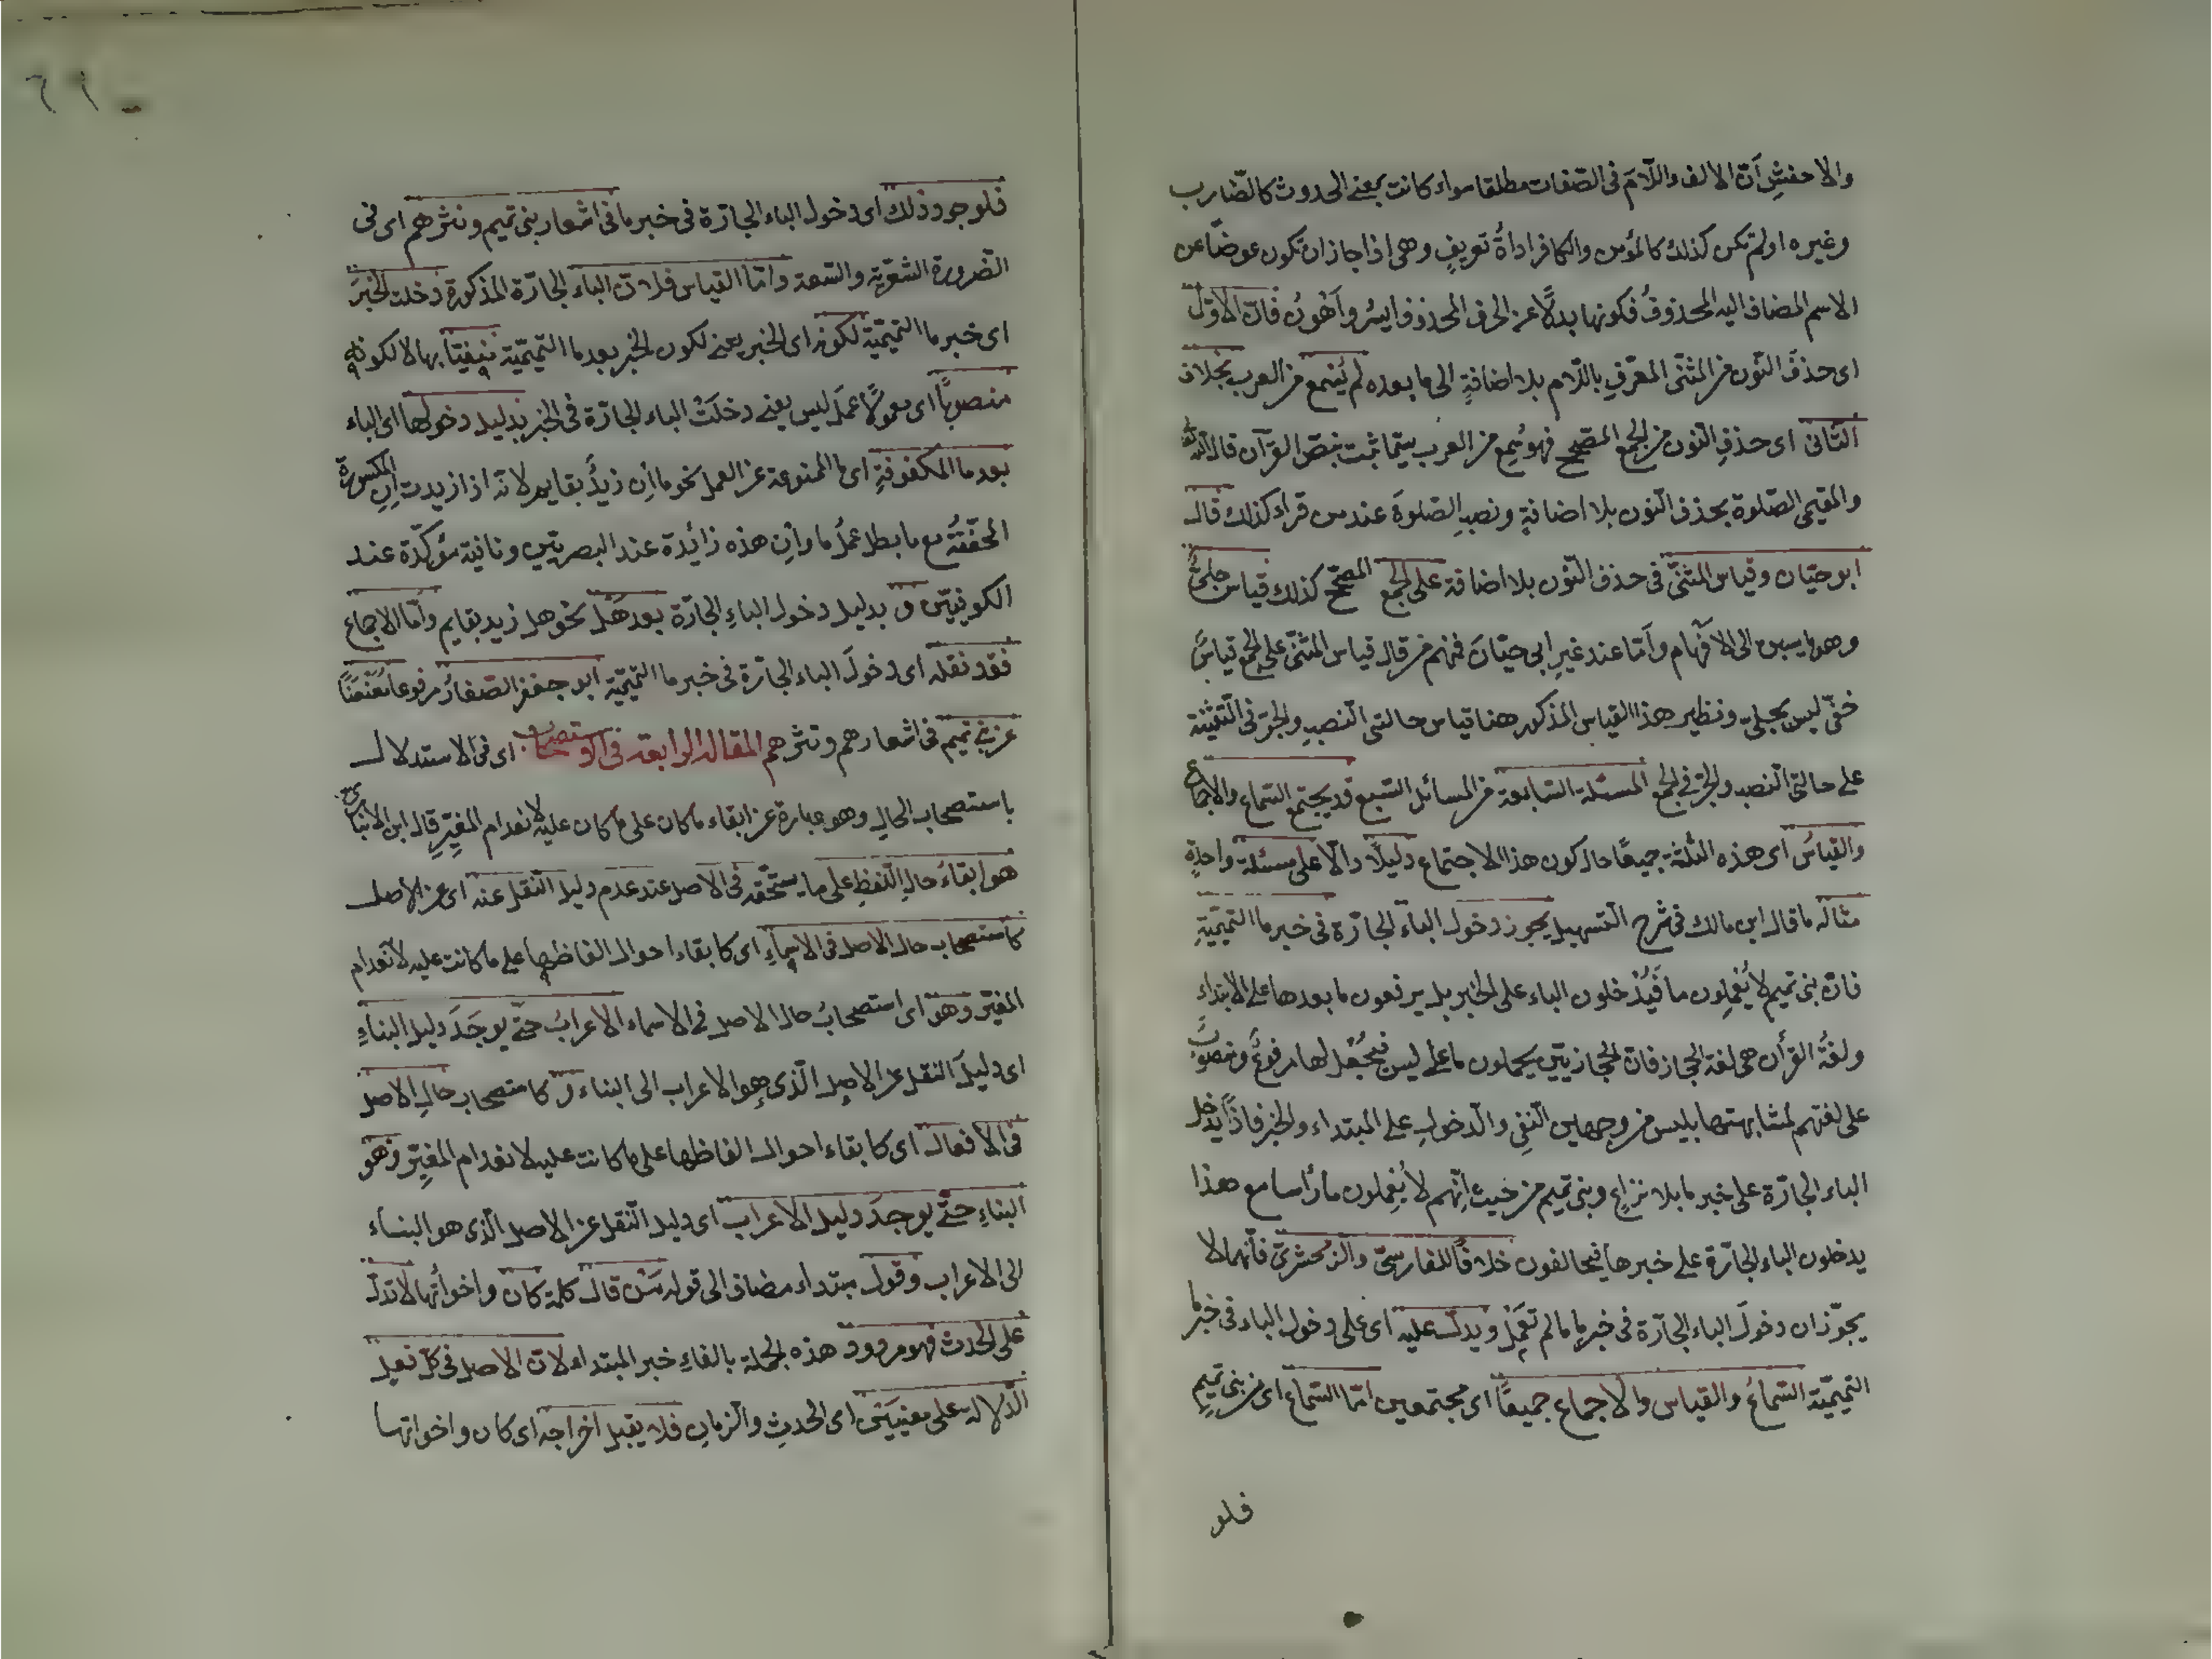 والاخفش ان الالف واللام فى الصفات مطلقا سواء كانت بمعنى الحدوث كالضارب
وغيره او لم تكن كذلك كالمؤمن والكافر اداة تعريف وهى اذا جاز ان تكون عوضا عن
الاسم المضاف اليه المحذوف فكونها بدلا عن الحرف المحذوف ايسر واهون فان الاول
اى حذف النون من المثنى المعرف باللام بلا اضافة الى ما بعده لم يسمع من العرب بخلاف
الثانى اى حذف النون من الجمع المصحح فهو سمع من العرب بيتما ثبت بنص القرآن قال الله تعالى
والمقيمى الصلوة بحذف النون بلا اضافة ونصب الصلوة عند من قراء كذلك قال
ابو حيان وقياس المثنى فى حذف النون بلا اضافة على الجمع المصحح كذلك قياس جلى
وهو ما يسبق الى الافهام واما عند غير ابى حيان فمنهم من قال قياس المثنى على الجمع قياس
خفى ليس بجلى ونظير هذا القياس المذكور هنا قياس حالتى النصب والجر فى التثنية
على حالتى النصب والجر فى الجمع المسئلة السابعة من المسائل السبع قد يجتمع السماع والاجماع
والقياس اى هذه الثلثة جميعا حال كون هذا الاجتماع دليلا دالا على مسئلة واحدة
مثاله ما قال ابن مالك فى شرح التسهيل يجوز دخول الباء الجارة فى خبر ما التميمية
فان بنى تميم لا يعملون ما فيدخلون الباء على الخبر بل يرفعون ما بعدها على الابتداء
ولغة القرأن هى لغة الحجاز فان الحجازيين يحملون ما على ليس فيجعل لها مرفوع ومنصوب
على لغتهم لمشابهتها بليس من وجهين النفى والدخول على المبتداء والخبر فاذا يدخل
الباء الجارة على خبر ما بلا نزاع وبنى تميم من حيث انهم لا يعملون ما رأسا مع هذا
يدخلون الباء الجارة على خبرها فيخالفون خلافا للفارسى والزمخشرى فانهما لا
يجوزان دخول الباء الجارة فى خبر ما ما لم تعمل ويدل عليه اى على دخول الباء فى خبر ما
التميمية السماع والقياس والاجماع جميعا اى مجتمعين اما السماع اى من بنى تميم
فلو
٦٩
فلوجود ذلك اى دخول الباء الجارة فى خبر ما فى اشعار بنى تميم ونثرهم اى فى
الضرورة الشعرية والسعة واما القياس فلان الباء الجارة المذكورة دخلت الخبر
اى خبر ما التميمية لكونه اى الخبر يعنى لكون الخبر بعد ما التميمية منفيا بها لا لكونه
منصوبا اى معمولا عمل ليس يعنى دخلت الباء الجارة فى الخبر بدليل دخولها اى الباء
بعد ما المكفوفة اى ما الممنوعة عن العمل نحو ما ان زيد بقايم لانه اذا زيدت ان المكسورة
المخففة مع ما بطل عمل ما وان هذه زائدة عند البصريين ونافية مؤكدة عند
الكوفيين و بدليل دخول الباء الجارة بعد هل نحو هل زيد بقايم واما الاجماع
فقد نقله اى دخول الباء الجارة فى خبر ما التميمية ابو جعفر الصفار مرفوعا معنعنا
عن بنى تميم فى اشعارهم ونثرهم المقالة الرابعة فى الاستصحاب اى فى الاستدلال
باستصحاب الحال وهو عبارة عن ابقاء ما كان على ما كان عليه لانعدام المغير قال ابن الانبارى
هو ابقاء حال اللفظ على ما يستحقه فى الاصل عند عدم دليل النقل عنه اى عن الاصل
كاستصحاب حال الاصل فى الاسماء اى كابقاء احوال الفاظها على ما كانت عليه لانعدام
المغير وهو اى استصحاب حال الاصل فى الاسماء الاعراب حتى يوجد دليل البناء
اى دليل النقل عن الاصل الذى هو الاعراب الى البناء و كاستصحاب حال الاصل
فى الافعال اى كابقاء احوال الفاظها على ما كانت عليه لانعدام المغير وهو
البناء حتى يوجد دليل الاعراب اى دليل النقل عن الاصل الذى هو البناء
الى الاعراب وقول مبتداء مضاف الى قوله من قال كلمة كان واخواتها لا تدل
على الحدث فهو مردود هذه الجملة بالفاء خبر المبتداء لان الاصل فى كل فعل
الدلالة على معنيين اى الحدث والزمان فلا يقبل اخراجه اى كان واخواتها